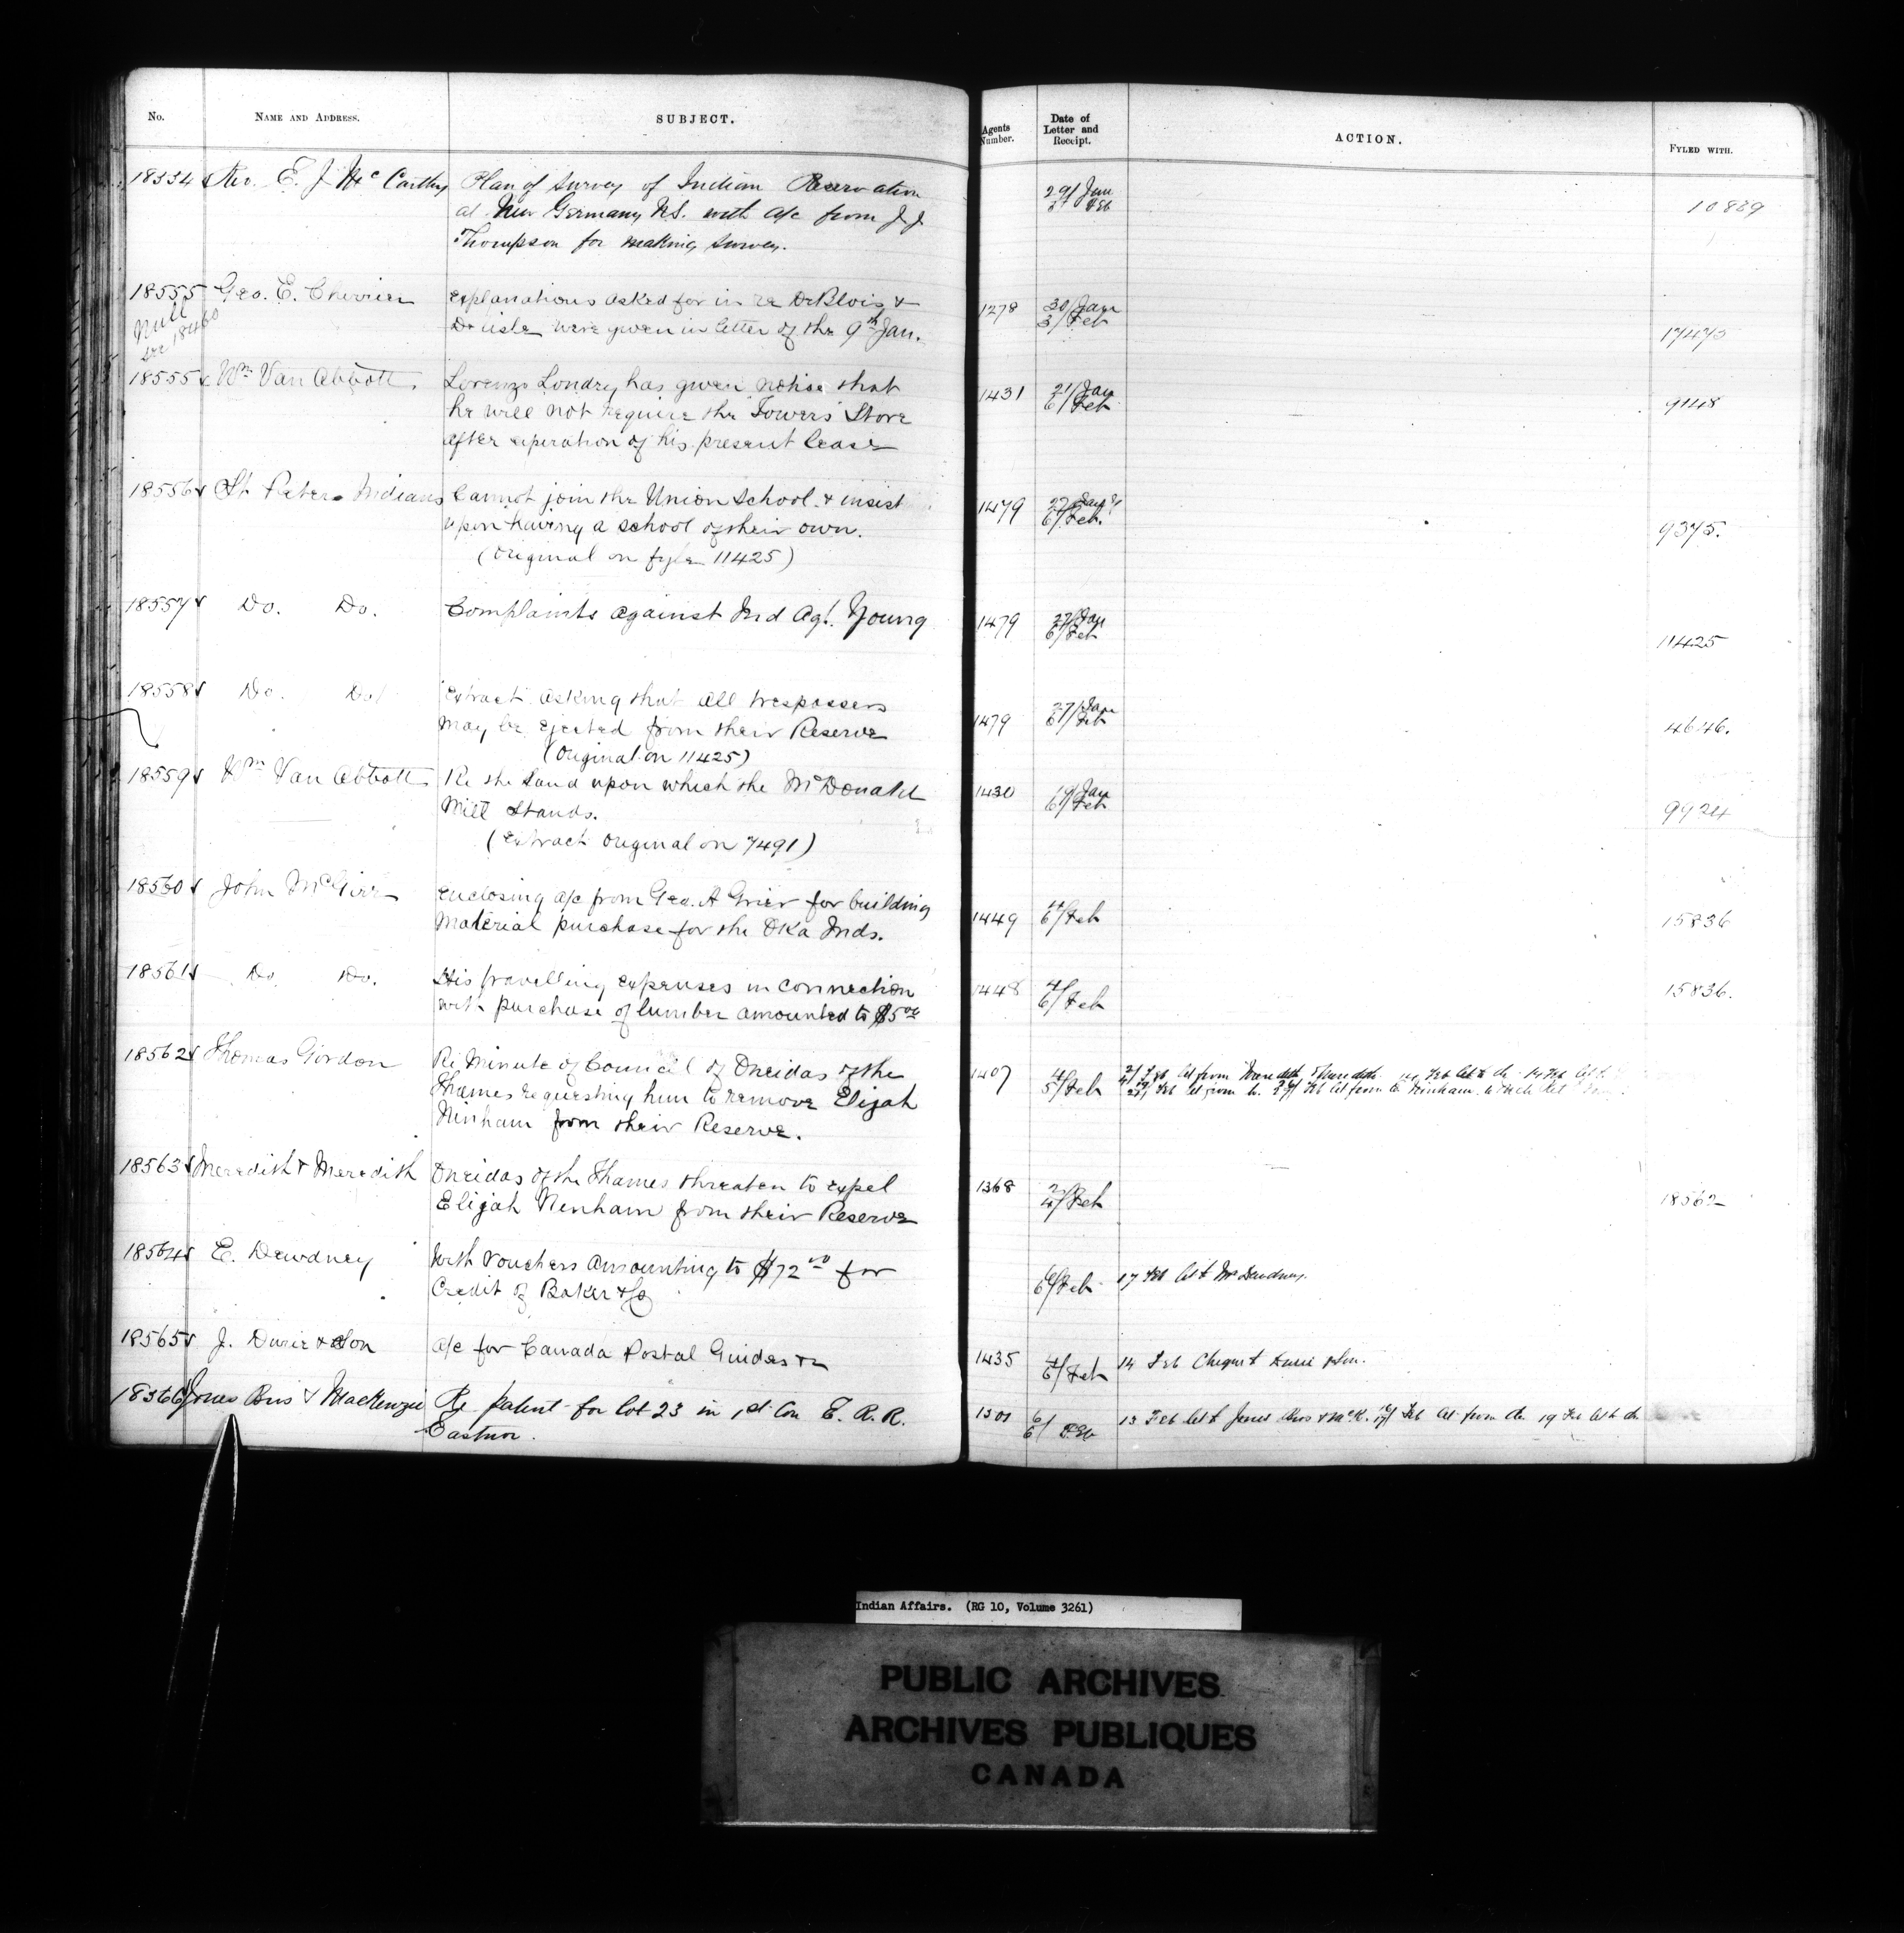 No.
NAME AND ADDRESS.
SUBJECT.
Agents Number.
Date of Letter and Receipt.
ACTION.
FYLED WITH.
18554 Rev. E. J. McCarthy Plan of Survey of Indian Reservation
at New Germany N.S. with a/c from J. J.
Thompson for making survey.
29/Jan
Feb
10829
18555 Geo. E. Cherrier Explanations asked for in re DeBlois &
Delisle were given in letter of the 9th Jan.
Null
see 18460
1278
30/Jan
3/Feb
17473
18555 Wm Van Abbott Lorenzo Londry has given notice that
he will not require the Towers' Store
after expiration of his present lease
1431
21/Jan
6/Feb
9148
18556 St. Peters Indians Cannot join the Union School & insist
upon having a school of their own.
(Original on fyle 11425)
1479
27/Jany
6/Feb.
9375.
18557 Do. Do. Complaints against Ind Agt. Young
1479
27/Jan
6/Feb
11425
18558 Do. Do. Extract asking that all trespassers
may be ejected from their Reserve
(Original on 11425)
1479
27/Jan
6/Feb
4646.
18559 Wm Van Abbott Re the Land upon which the McDonald
Mill Stands.
(Extract original on 7491)
1430
19/Jan
6/Feb
9924
18560 John McGirr Enclosing a/c from Geo. A Grier for building
Material purchase for the Oka Inds.
1449
6/Feb
15836
18561 Do. Do. His travelling expenses in connection
with purchase of lumber amounted to $5 00
1448
4/
6/Feb
15836.
18562 Thomas Gordon Re Minute of Council of Oneidas of the
Thames requesting him to remove Elijah
Ninham from their Reserve.
1407
4/
5/Feb
2/Feb let from Meredith & Meredith. Feb let to do 14 Feb let
Feb let from Feb let from E. Ninham
18563 Meredith & Meredith Oneidas of the Thames threaten to expel
Elijah Nenham from their Reserve
1368
2/
4/Feb
18562
18564 E. Dewdney With Vouchers amounting to $72 00 for
Credit of Baker & Co
6/
6/Feb
17 Feb let to Mr Dewdney.
18565 J. Durie & Son a/c for Canada Postal Guides &c
1435
4/
6/Feb
14 Feb Cheque to Durie & Son.
18566 Jones Bros & MacKenzie Re patent for lot 23 in 1st Con E. R. R.
Eastnor.
1301
6/
6/ Feb
13 Feb let to Jones Bros & McK. 16/17/ Feb let from do. 19 Feb let to do
Indian Affairs. (RG 10, Volume 3261)
PUBLIC ARCHIVES
ARCHIVES PUBLIQUES
CANADA